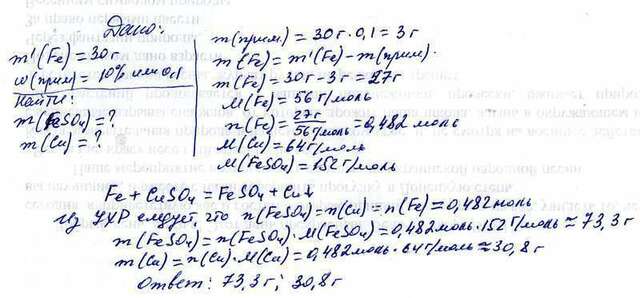 Дано:
m'(Fe) = 30г
ω(прим) = 10% или 0,1
Найти:
m(FeSO₄) = ?
m(Cu) = ?
m(прим) = 30г · 0,1 = 3г
m(Fe) = m'(Fe) - m(прим).
m(Fe) = 30г - 3г = 27г
M(Fe) = 56 г/моль
n(Fe) = 27г / 56 г/моль = 0,482 моль
M(Cu) = 64 г/моль
M(FeSO₄) = 152 г/моль
Fe + CuSO₄ = FeSO₄ + Cu↓
Из УХР следует, что n(FeSO₄) = n(Cu) = n(Fe) = 0,482 моль
m(FeSO₄) = n(FeSO₄) · M(FeSO₄) = 0,482 моль · 152 г/моль ≈ 73,3 г
m(Cu) = n(Cu) · M(Cu) = 0,482 моль · 64 г/моль ≈ 30,8 г
Ответ: 73,3 г; 30,8 г